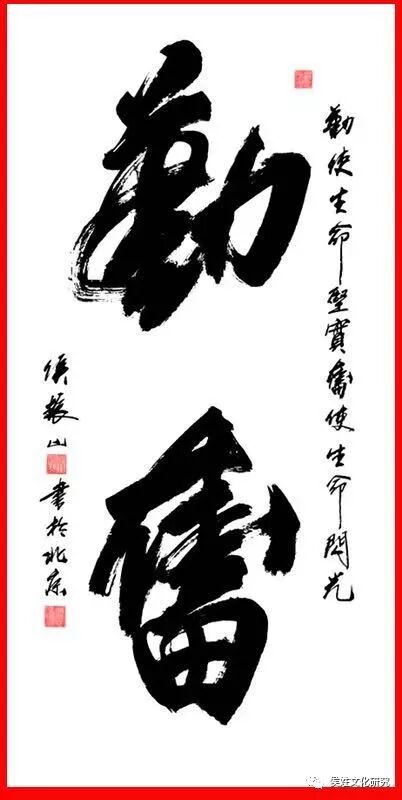 勤使生命堅實奮使生命閃光
勤
奮
侯振山
書於北京
侯姓文化研究